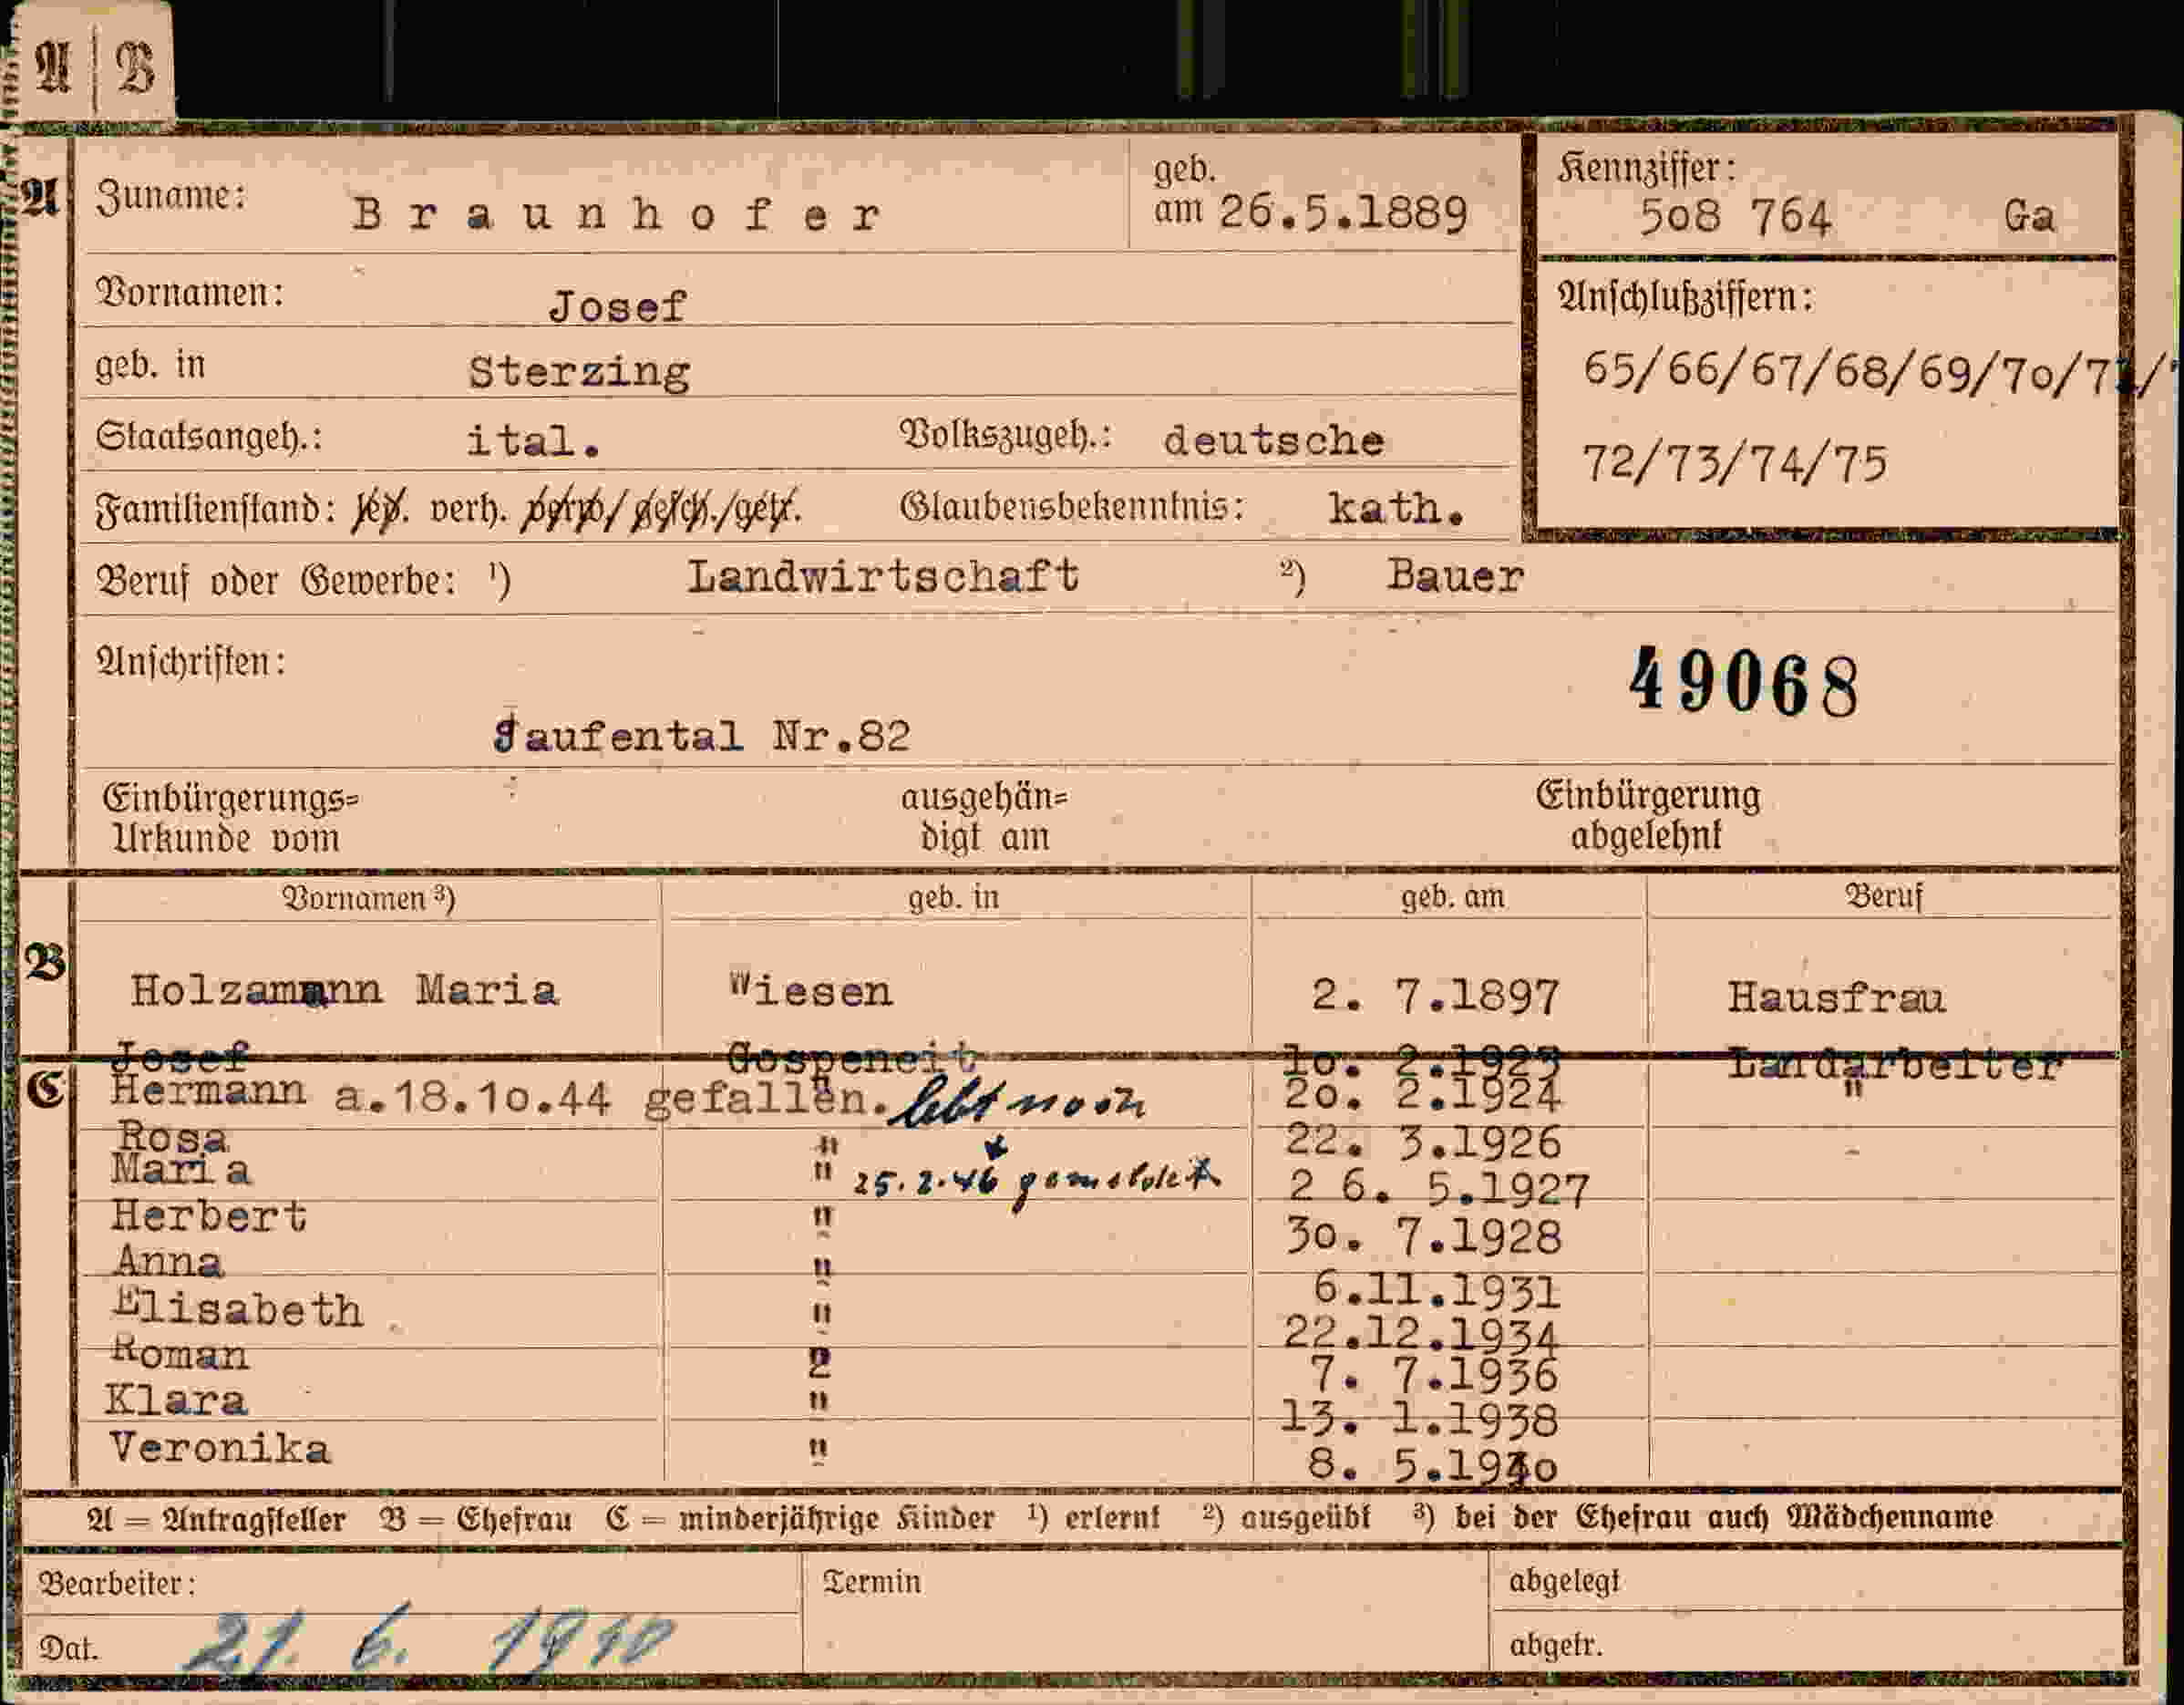 A | B
A Zuname: Braunhofer geb. am 26.5.1889 Kennziffer: 508 764 Ga
Vornamen: Josef Anschlußziffern:
geb. in Sterzing 65/66/67/68/69/70/71/
Staatsangeh.: ital. Volkszugeh.: deutsche 72/73/74/75
Familienstand: led. verh. verw./gesch./getr. Glaubensbekenntnis: kath.
Beruf oder Gewerbe: ¹) Landwirtschaft ²) Bauer
Anschriften: 49068
Jaufental Nr.82
Einbürgerungs= ausgehän= Einbürgerung
Urkunde vom digt am abgelehnt
Vornamen ³) geb. in geb. am Beruf
B Holzamann Maria Wiesen 2. 7.1897 Hausfrau
Josef Gospeneit 10. 2.1923 Landarbeiter
C Hermann a.18.10.44 gefallen. lebt noch 20. 2.1924 "
Rosa " 22. 3.1926
Maria " 25.2.46 2 6. 5.1927
Herbert " 30. 7.1928
Anna " 6.11.1931
Elisabeth " 22.12.1934
Roman 2 7. 7.1936
Klara " 13. 1.1938
Veronika " 8. 5.1940
A = Antragsteller B = Ehefrau C = minderjährige Kinder ¹) erlernt ²) ausgeübt ³) bei der Ehefrau auch Mädchenname
Bearbeiter: Termin abgelegt
Dat. 21. 6. 1940 abgetr.